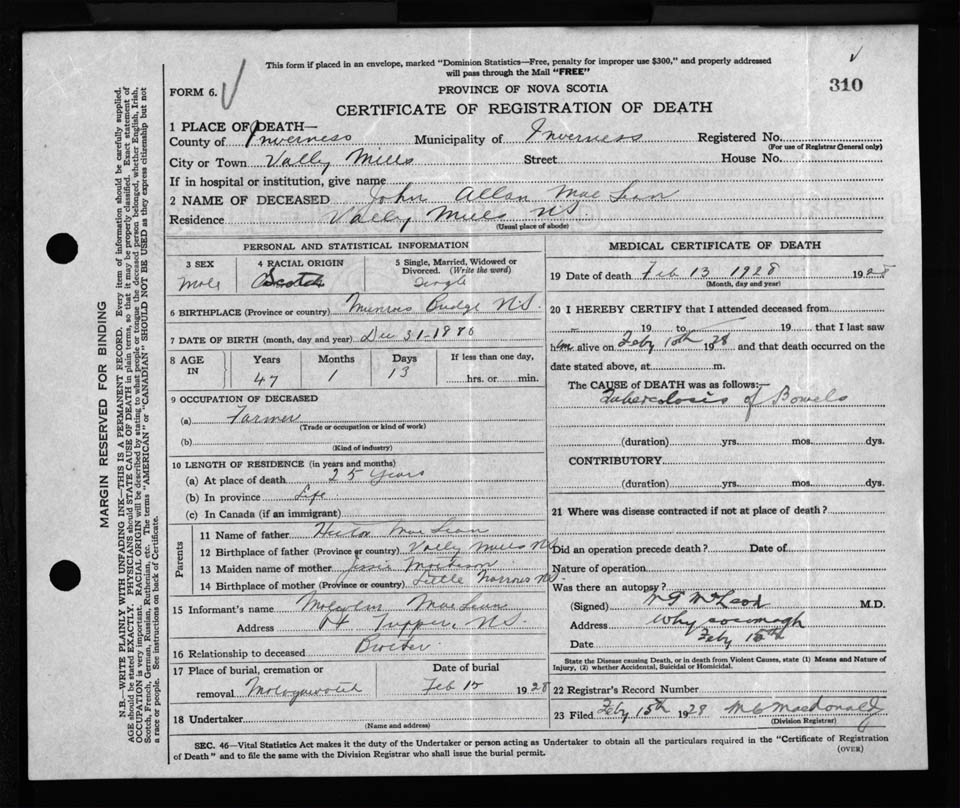 This form if placed in an envelope, marked "Dominion Statistics—Free, penalty for improper use $300," and properly addressed
will pass through the Mail "FREE"
FORM 6.
PROVINCE OF NOVA SCOTIA
310
CERTIFICATE OF REGISTRATION OF DEATH
1 PLACE OF DEATH—
County of Inverness Municipality of Inverness Registered No.
(For use of Registrar General only)
City or Town Vally Mills Street House No.
If in hospital or institution, give name
2 NAME OF DECEASED John Allan MacLean
Residence Vally Mills N.S.
(Usual place of abode)
PERSONAL AND STATISTICAL INFORMATION
3 SEX 4 RACIAL ORIGIN 5 Single, Married, Widowed or Divorced. (Write the word)
Male Scotch Single
6 BIRTHPLACE (Province or country) Munros Bridge N.S.
7 DATE OF BIRTH (month, day and year) Dec 31-1880
8 AGE IN Years Months Days If less than one day,
47 1 13 hrs. or min.
9 OCCUPATION OF DECEASED
(a) Farmer
(Trade or occupation or kind of work)
(b)
(Kind of industry)
10 LENGTH OF RESIDENCE (in years and months)
(a) At place of death 25 years
(b) In province Life
(c) In Canada (if an immigrant)
Parents
11 Name of father Hector MacLean
12 Birthplace of father (Province or country) Vally Mills N.S.
13 Maiden name of mother Jessie
14 Birthplace of mother (Province or country) Little Narrows N.S.
15 Informant's name Malcolm MacLean
Address Pt Tupper, N.S.
16 Relationship to deceased Brother
17 Place of burial, cremation or Date of burial
removal Feb 15 1928
18 Undertaker
(Name and address)
MEDICAL CERTIFICATE OF DEATH
19 Date of death Feb 13 1928 1928
(Month, day and year)
20 I HEREBY CERTIFY that I attended deceased from
19 to 19 that I last saw
him alive on Feby 10th 1928 and that death occurred on the
date stated above, at m.
The CAUSE of DEATH was as follows:—
Tuberculosis of Bowels
(duration) yrs. mos. dys.
CONTRIBUTORY
(duration) yrs. mos. dys.
21 Where was disease contracted if not at place of death?
Did an operation precede death? Date of
Nature of operation
Was there an autopsy?
(Signed) McLeod M.D.
Address Whycocomagh
Date Feby 15th
State the Disease causing Death, or in death from Violent Causes, state (1) Means and Nature of
Injury, (2) whether Accidental, Suicidal or Homicidal.
22 Registrar's Record Number
23 Filed Feby 15th 1928 M C Macdonald
(Division Registrar)
SEC. 46—Vital Statistics Act makes it the duty of the Undertaker or person acting as Undertaker to obtain all the particulars required in the "Certificate of Registration
of Death" and to file the same with the Division Registrar who shall issue the burial permit.
(OVER)
MARGIN RESERVED FOR BINDING
N.B.—WRITE PLAINLY WITH UNFADING INK—THIS IS A PERMANENT RECORD. Every item of information should be carefully supplied.
AGE should be stated EXACTLY. PHYSICIANS should STATE CAUSE OF DEATH in plain terms, so that it may be properly classified. Exact statement of
OCCUPATION is very important. RACIAL ORIGIN will be described by stating to what people or tongue the deceased person belonged, whether English, Irish,
Scotch, French, German, Russian, Ruthenian, etc. The terms "AMERICAN" or "CANADIAN" SHOULD NOT BE USED as they express citizenship but not
a race or people. See instructions on back of Certificate.